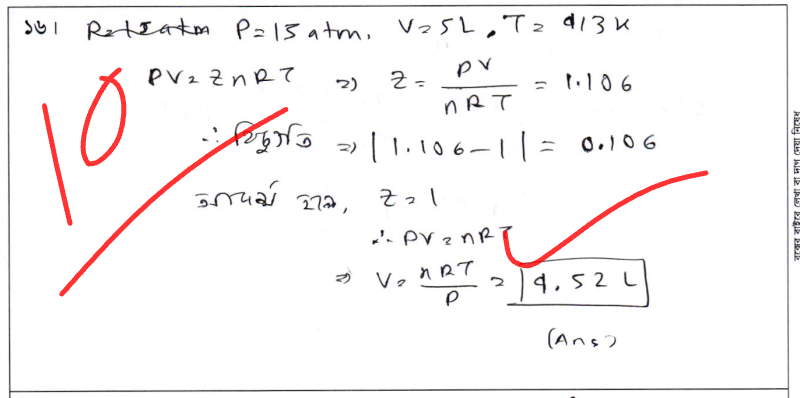 ১৬। P=15 atm, V=5L, T=413K
10
PV=ZnRT ⇒ Z = PV/nRT = 1.106
∴ বিচ্যুতি ⇒ |1.106-1| = 0.106
আদর্শ হলে, Z=1
∴ PV=nRT
⇒ V = nRT/P = 4.52 L
(Ans)
বক্সের বাইরে লেখা বা দাগ দেয়া নিষেধ